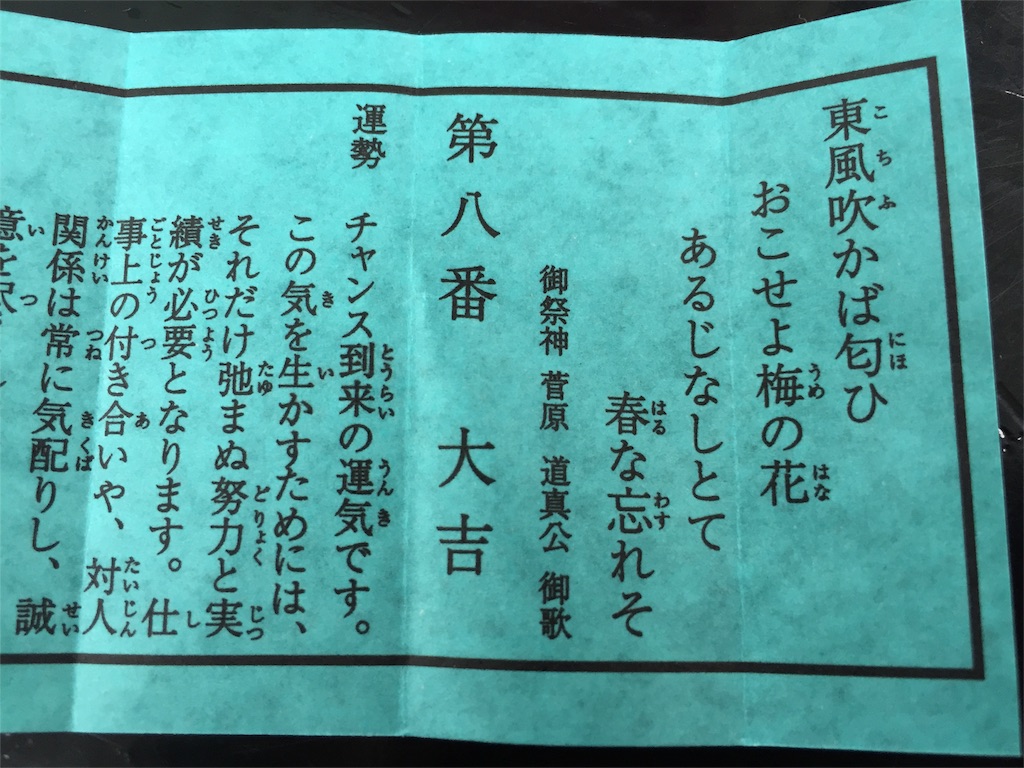 東風吹かば匂ひ
おこせよ梅の花
あるじなしとて
春な忘れそ
御祭神 菅原 道真公 御歌
第八番 大吉
運勢
チャンス到来の運気です。
この気を生かすためには、
それだけ弛まぬ努力と実
績が必要となります。仕
事上の付き合いや、対人
関係は常に気配りし、誠
意を